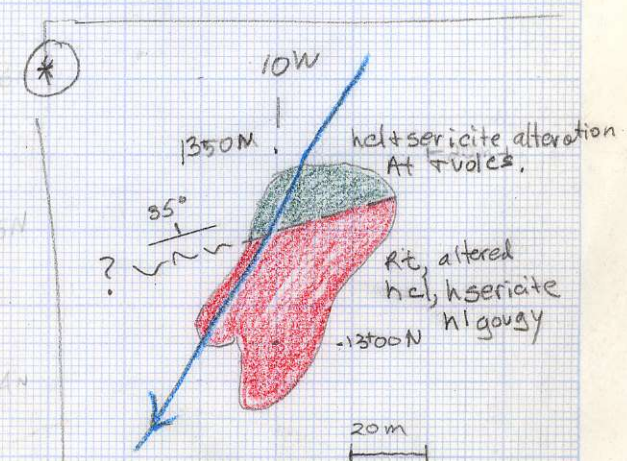 *
10W
1350N
hcl + sericite alteration
At + volcs.
35°
?
Rt, altered
hcl, h sericite
hl gougy
1300N
20m